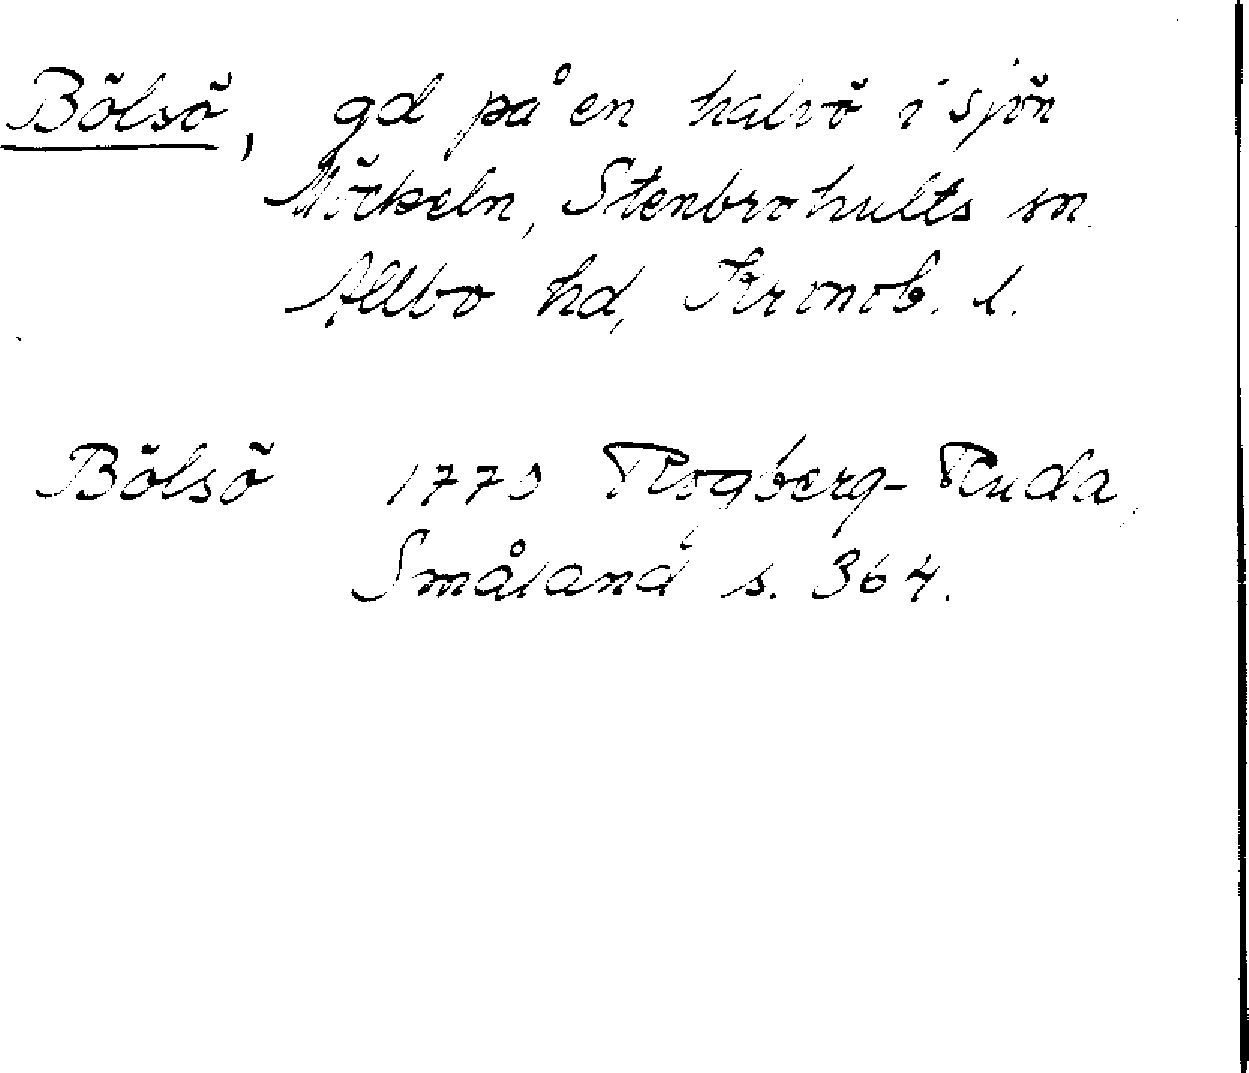 Bölsö, gd på en halvö i sjön
Möckeln, Stenbrohults sn
Allbo hd, Kronob. l.
Bölsö 1770 Rogberg-Ruda,
Småland s. 364.